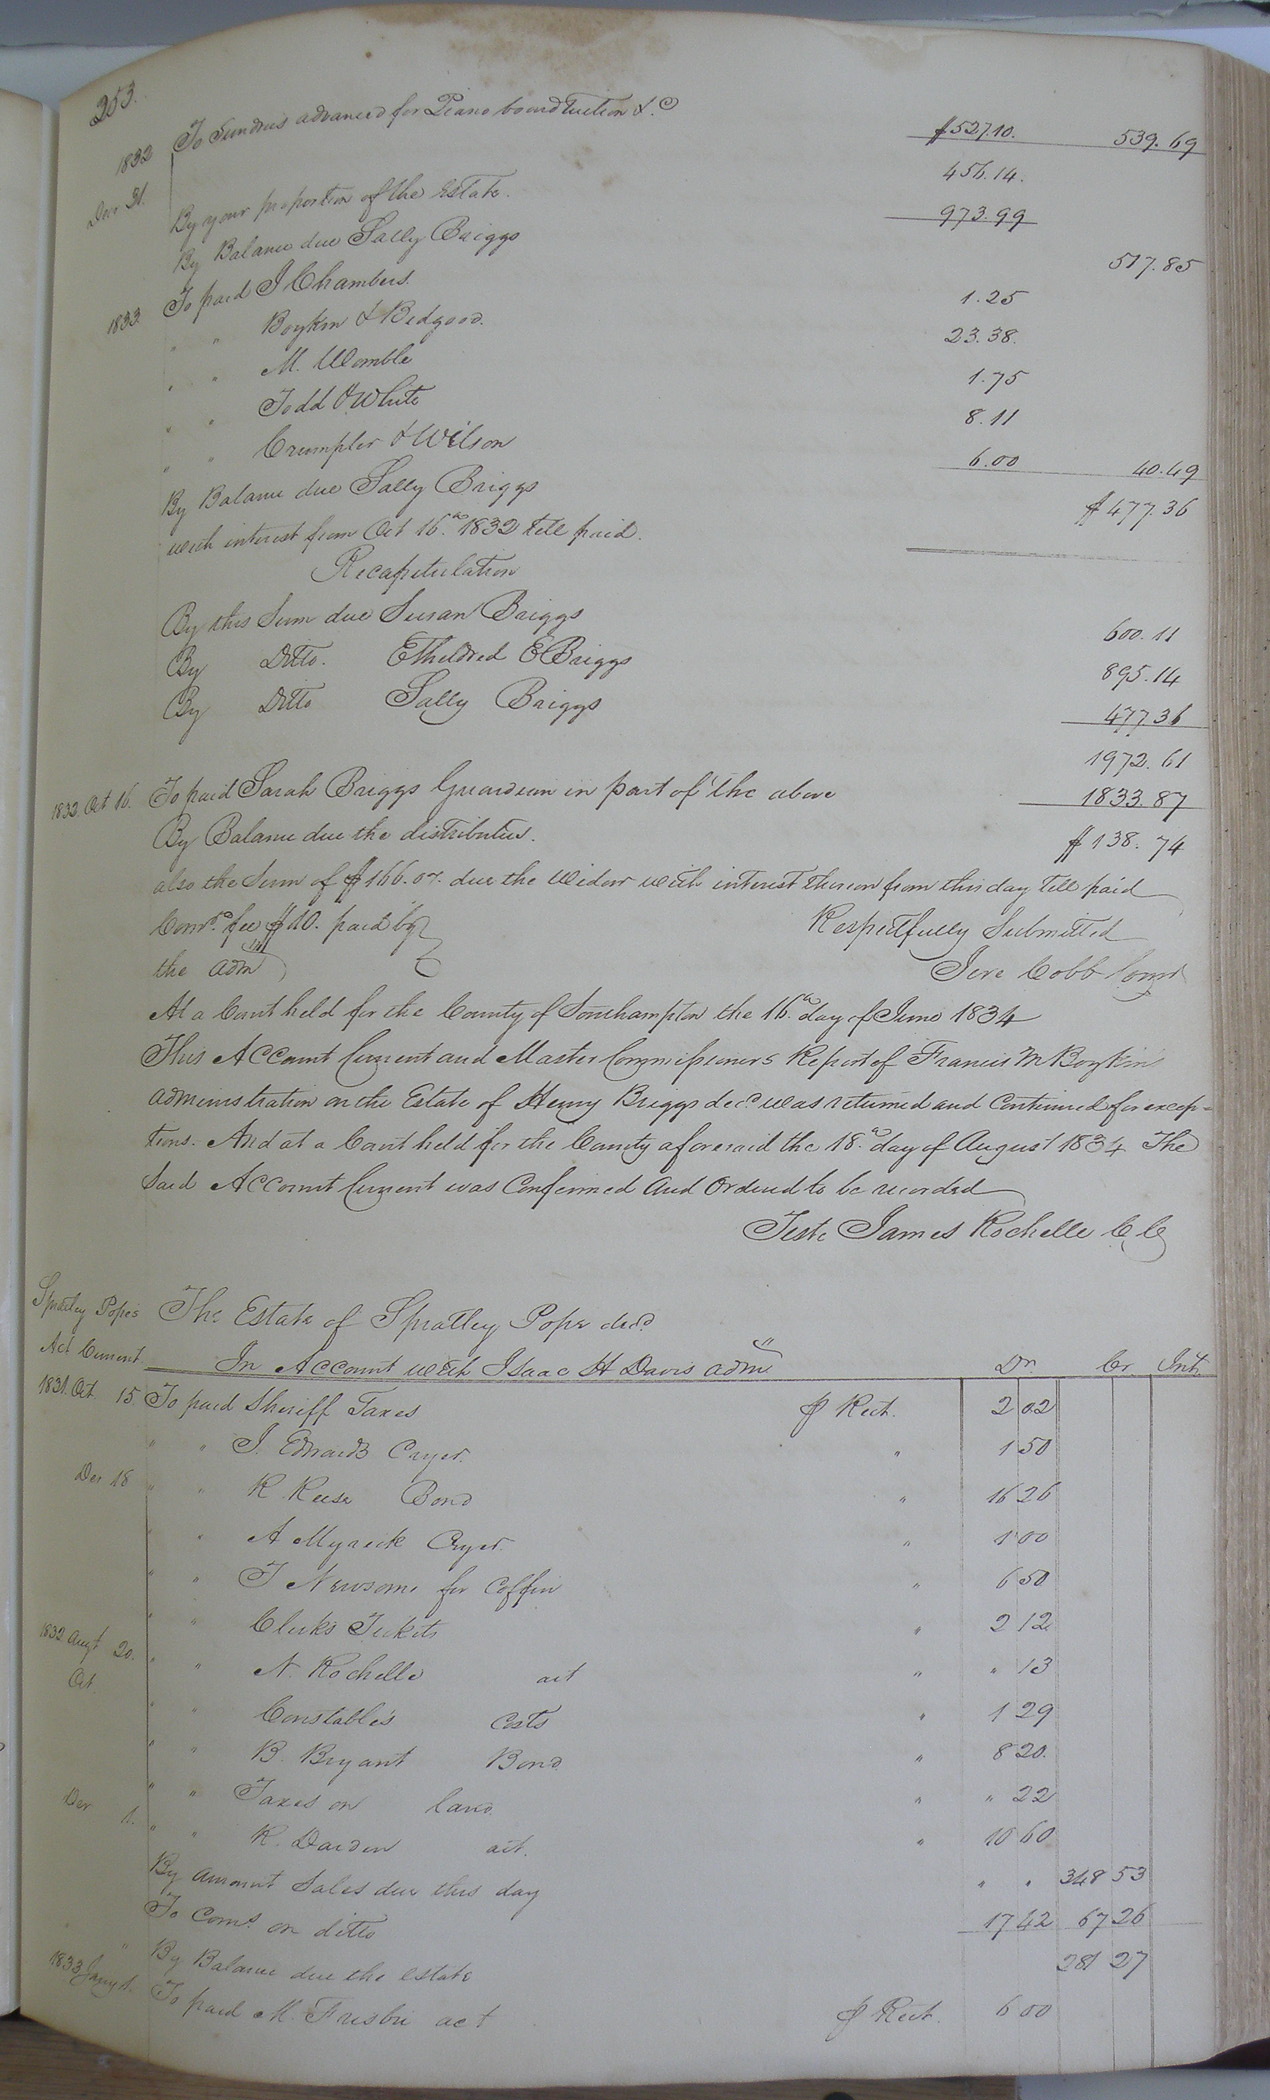 253.
To Sundries advanced for Piano board tuition &c $527.10. 539.69
1832
Decr 31. 456.14.
By your proportion of the Estate. 973.99
By Balance due Sally Briggs 517.85
1833 To paid J Chambers. 1.25
" " Boykin & Bedgood. 23.38.
" " M. Womble 1.75
" " Todd & White 8.11
" " Crumpler & Wilson 6.00 40.49
By Balance due Sally Briggs $477.36
with interest from Oct 16th. 1832 till paid.
Recapitulation
By this Sum due Susan Briggs 600.11
By Ditto. Etheldred E Briggs 895.14
By Ditto Sally Briggs 477.36
1972.61
1832 Oct 16. To paid Sarah Briggs Guardian in part of the above 1833.87
By Balance due the distributees. $138.74
also the Sum of $166.07. due the Widow with interest thereon from this day till paid
Comrs. fee $10. paid by Respectfully Submitted
the admr Jere Cobb Comr
At a Court held for the County of Southampton the 16th. day of June 1834
This Account Current and Master Commissioners Report of Francis M Boykin
administration on the Estate of Henry Briggs decd was returned and Continued for excep-
tions. And at a Court held for the County aforesaid the 18.th day of August 1834 The
Said Account Current was Confirmed and Ordered to be recorded
Teste James Rochelle C C
Spratley Popes The Estate of Spratley Pope decd
Act Current In Account with Isaac H Davis admr Dr Cr Int
1831. Oct 15 To paid Sheriff Taxes $ Rect. 2 02
" " J. Edwards Cryer. " 1 50
Dec 18 " " R Reese Bond " 16 26
" " A Myrick Cryer. " 1 00
" " T Newsome for Coffin " 6 50
" " Clerks Tickets " 2 12
1832 Augt 20. " " N. Rochelle act " " 13
Oct " " Constable's Costs " 1 29
" " B. Bryant Bond " 8 20.
" " Taxes on land " " 22
Der 1. " " R. Darden act. " 10 60
By amount Sales due this day " " 348 53
To Coms. on ditto 17 42 67 26
" By Balance due the estate 281 27
1833 Jany 1. To paid M. Frisbie act $ Rect. 6 00